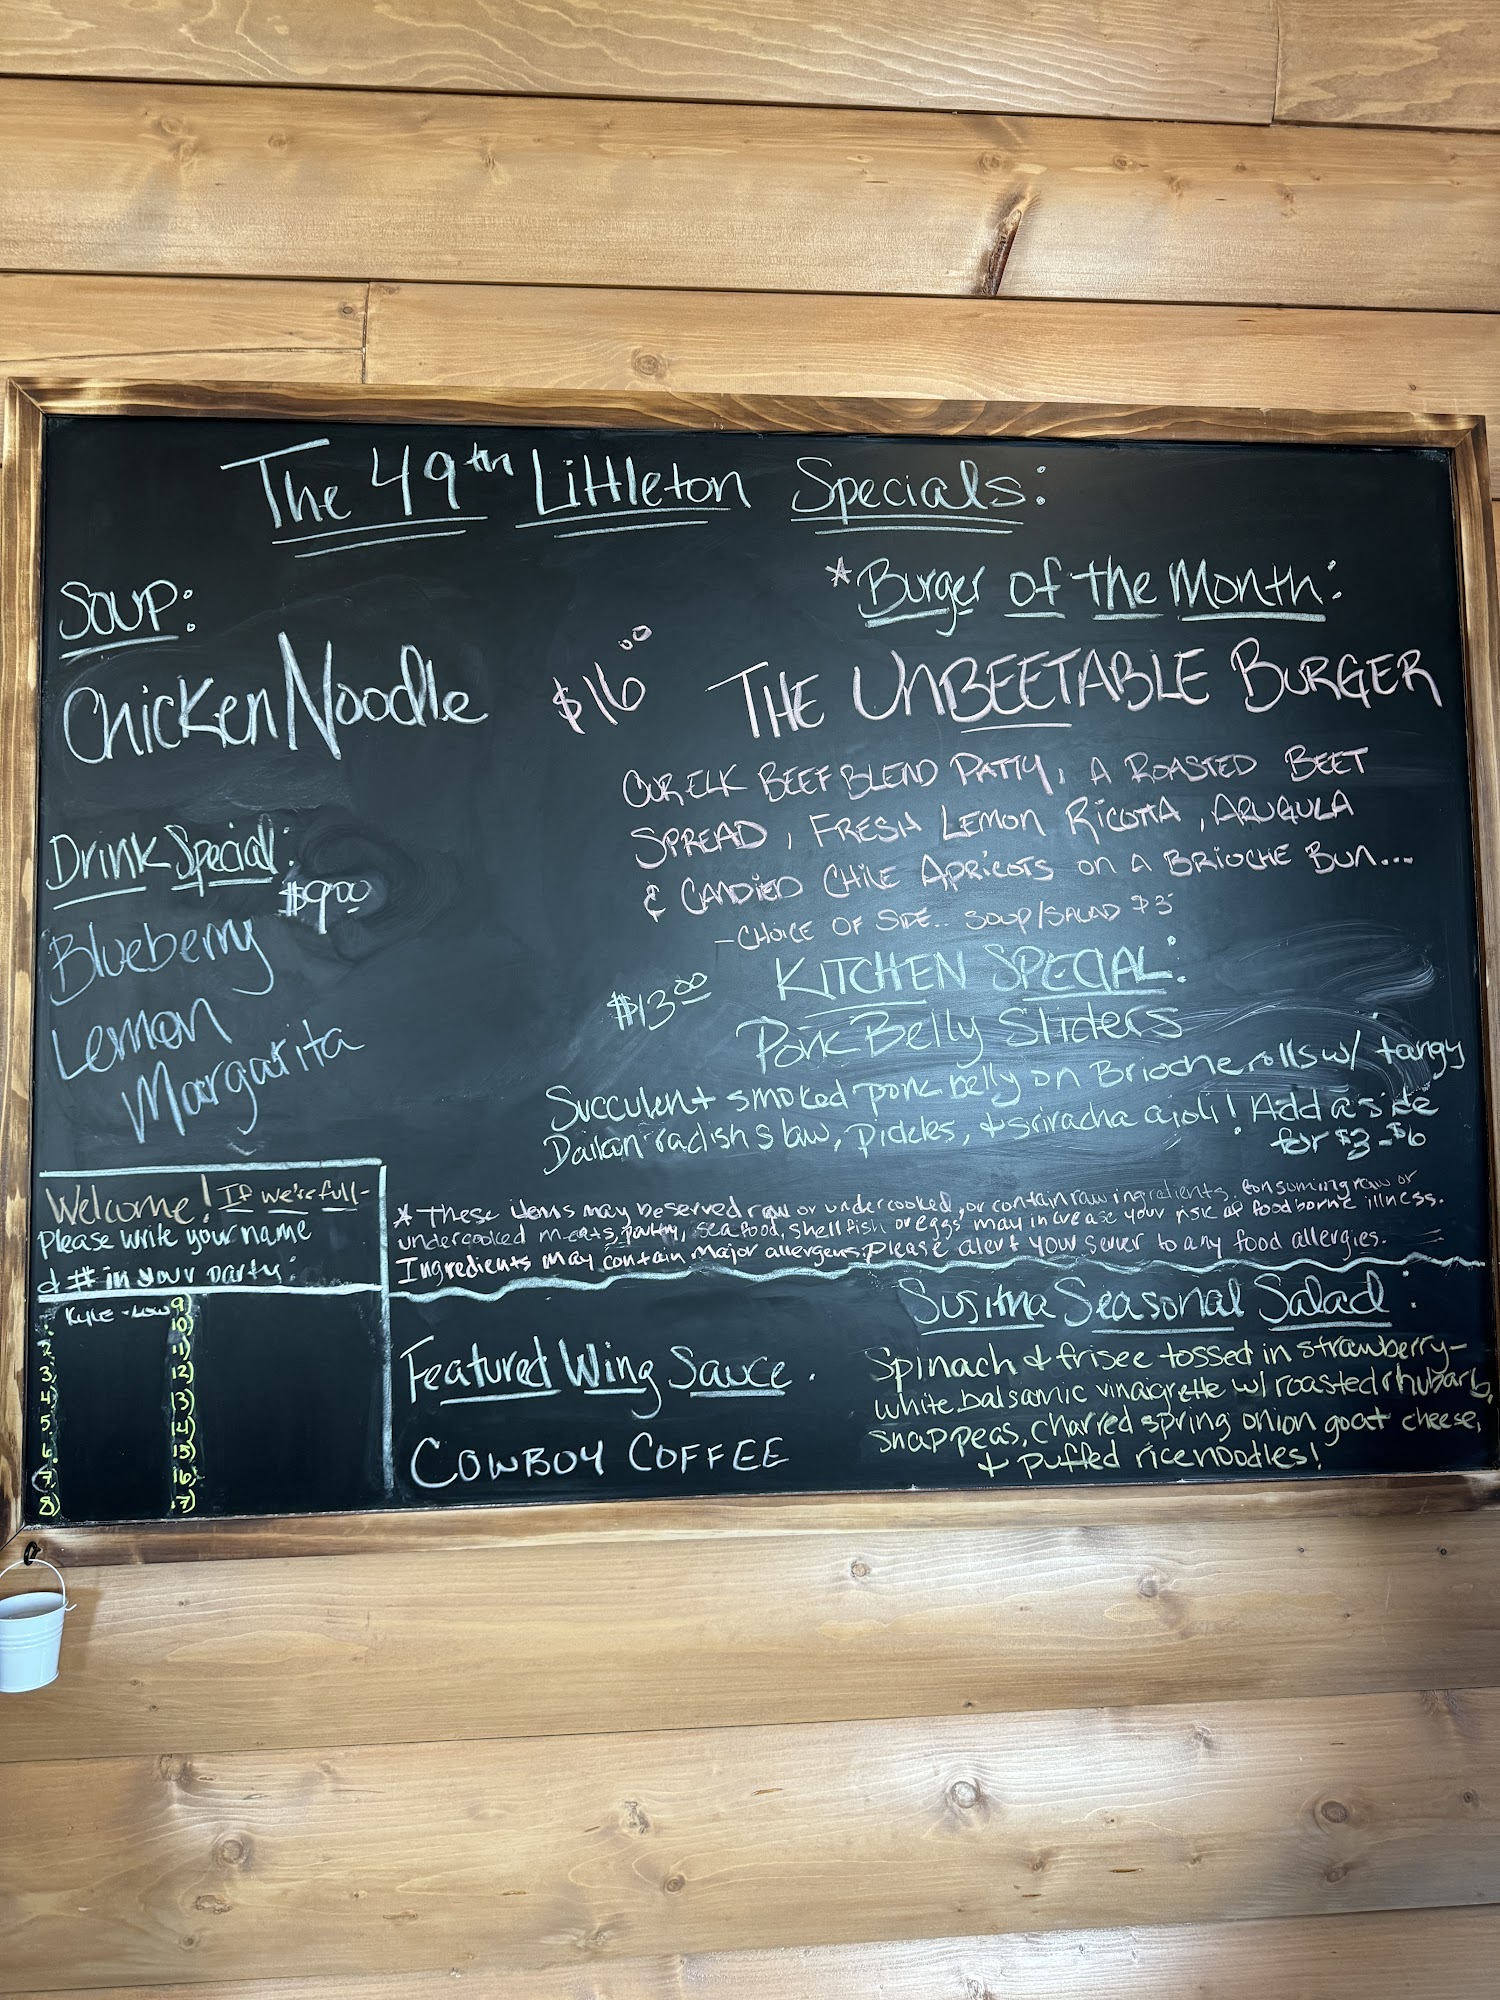 The 49th Littleton Specials:
Soup:
Chicken Noodle
Drink Special:
$9.00
Blueberry
Lemon
Margarita
*Burger of the Month:
$16.00 THE UNBEETABLE BURGER
OUR ELK BEEF BLEND PATTY, A ROASTED BEET
SPREAD, FRESH LEMON RICOTTA, ARUGULA
& CANDIED CHILE APRICOTS ON A BRIOCHE BUN...
- CHOICE OF SIDE.. SOUP/SALAD $3
$13.00 KITCHEN SPECIAL:
Pork Belly Sliders
Succulent smoked pork belly on Brioche rolls w/ tangy
Daikon radish slaw, pickles, & sriracha aioli! Add a side
for $3-$6
* These items may be served raw or undercooked, or contain raw ingredients. Consuming raw or
undercooked meats, poultry, seafood, shellfish or eggs may increase your risk of foodborne illness.
Ingredients may contain major allergens. Please alert your server to any food allergies.
Welcome! If we're full-
Please write your name
& # in your party:
Kyle - 9)
10)
2. 11)
3. 12)
4. 13)
5. 14)
6. 15)
7. 16)
8) 17)
Featured Wing Sauce.
COWBOY COFFEE
Susitna Seasonal Salad:
Spinach & frisee tossed in strawberry-
white balsamic vinaigrette w/ roasted rhubarb,
snap peas, charred spring onion goat cheese,
& puffed rice noodles!